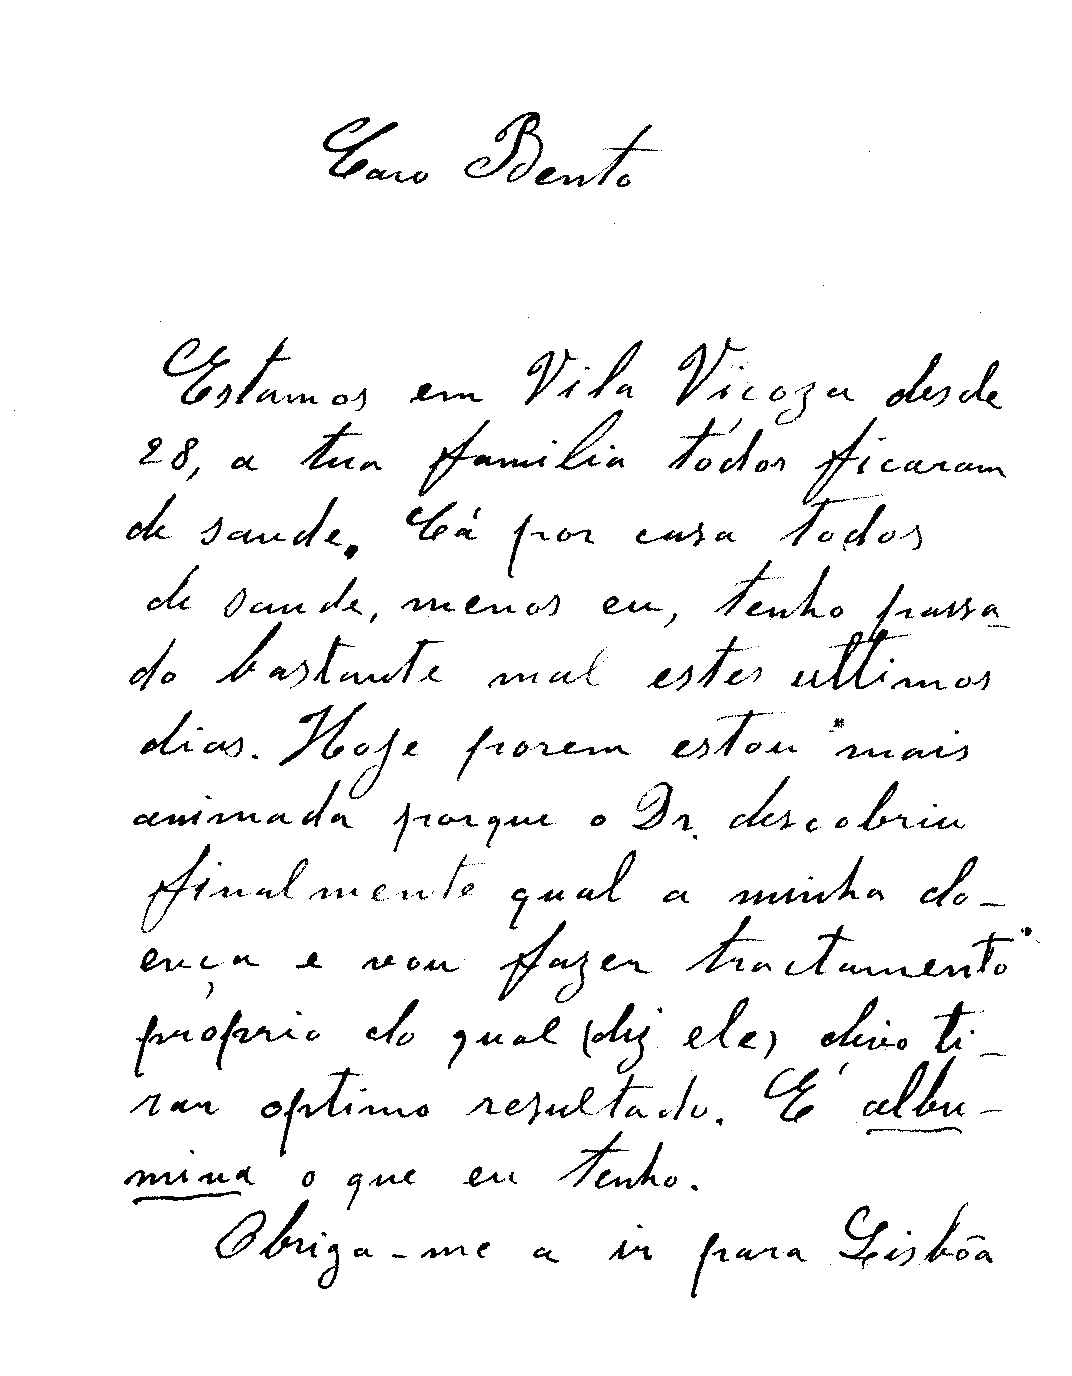 Caro Bento
Estamos em Vila Viçoza desde
28, a tua familia tódos ficaram
de saude. Cá por casa todos
de saude, menos eu, tenho passa-
do bastante mal estes ultimos
dias. Hoje porem estou mais
animada porque o Dr. descobriu
finalmente qual a minha do-
ença e vou fazer tractamento
próprio do qual (diz ele) devo ti-
rar optimo resultado. É albu-
mina o que eu tenho.
Obriga-me a ir para Lisbôa